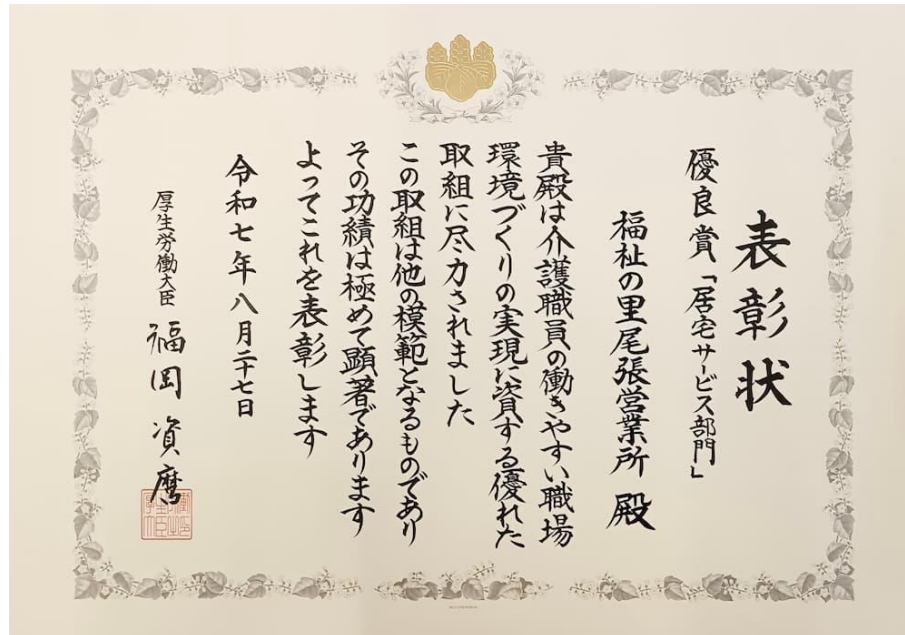 表彰状
優良賞「居宅サービス部門」
福祉の里尾張営業所 殿
貴殿は介護職員の働きやすい職場
環境づくりの実現に資する優れた
取組に尽力されました
この取組は他の模範となるものであり
その功績は極めて顕著であります
よってこれを表彰します
令和七年八月二十七日
厚生労働大臣 福岡資麿